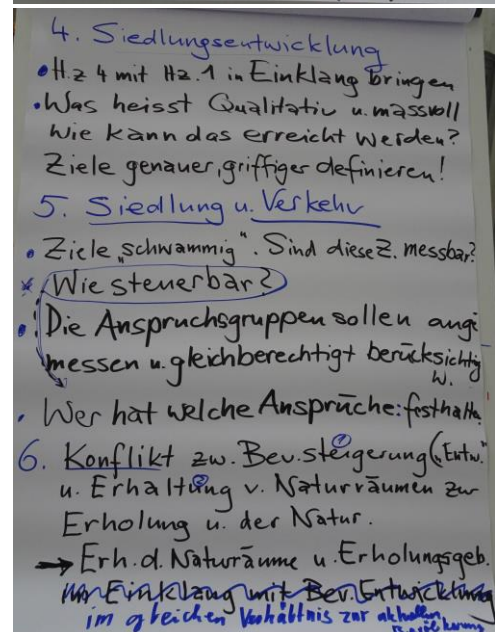 4. Siedlungsentwicklung
• H.z 4 mit Hz.1 in Einklang bringen
• Was heisst Qualitativ u. massvoll
Wie kann das erreicht werden?
Ziele genauer, griffiger definieren!
5. Siedlung u. Verkehr
• Ziele „schwammig". Sind diese Z. messbar?
* Wie steuerbar?
• Die Anspruchsgruppen sollen ange
messen u. gleichberechtigt berücksichtig
w.
• Wer hat welche Ansprüche: festhalte
6. Konflikt zw. Bev.steigerung ① („Entw."
u. Erhaltung ② v. Naturräumen zur
Erholung u. der Natur.
→ Erh. d. Naturräume u. Erholungsgeb.
im Einklang mit Bev. Entwicklung
im gleichen Verhältnis zur aktuellen
Bevölkerung